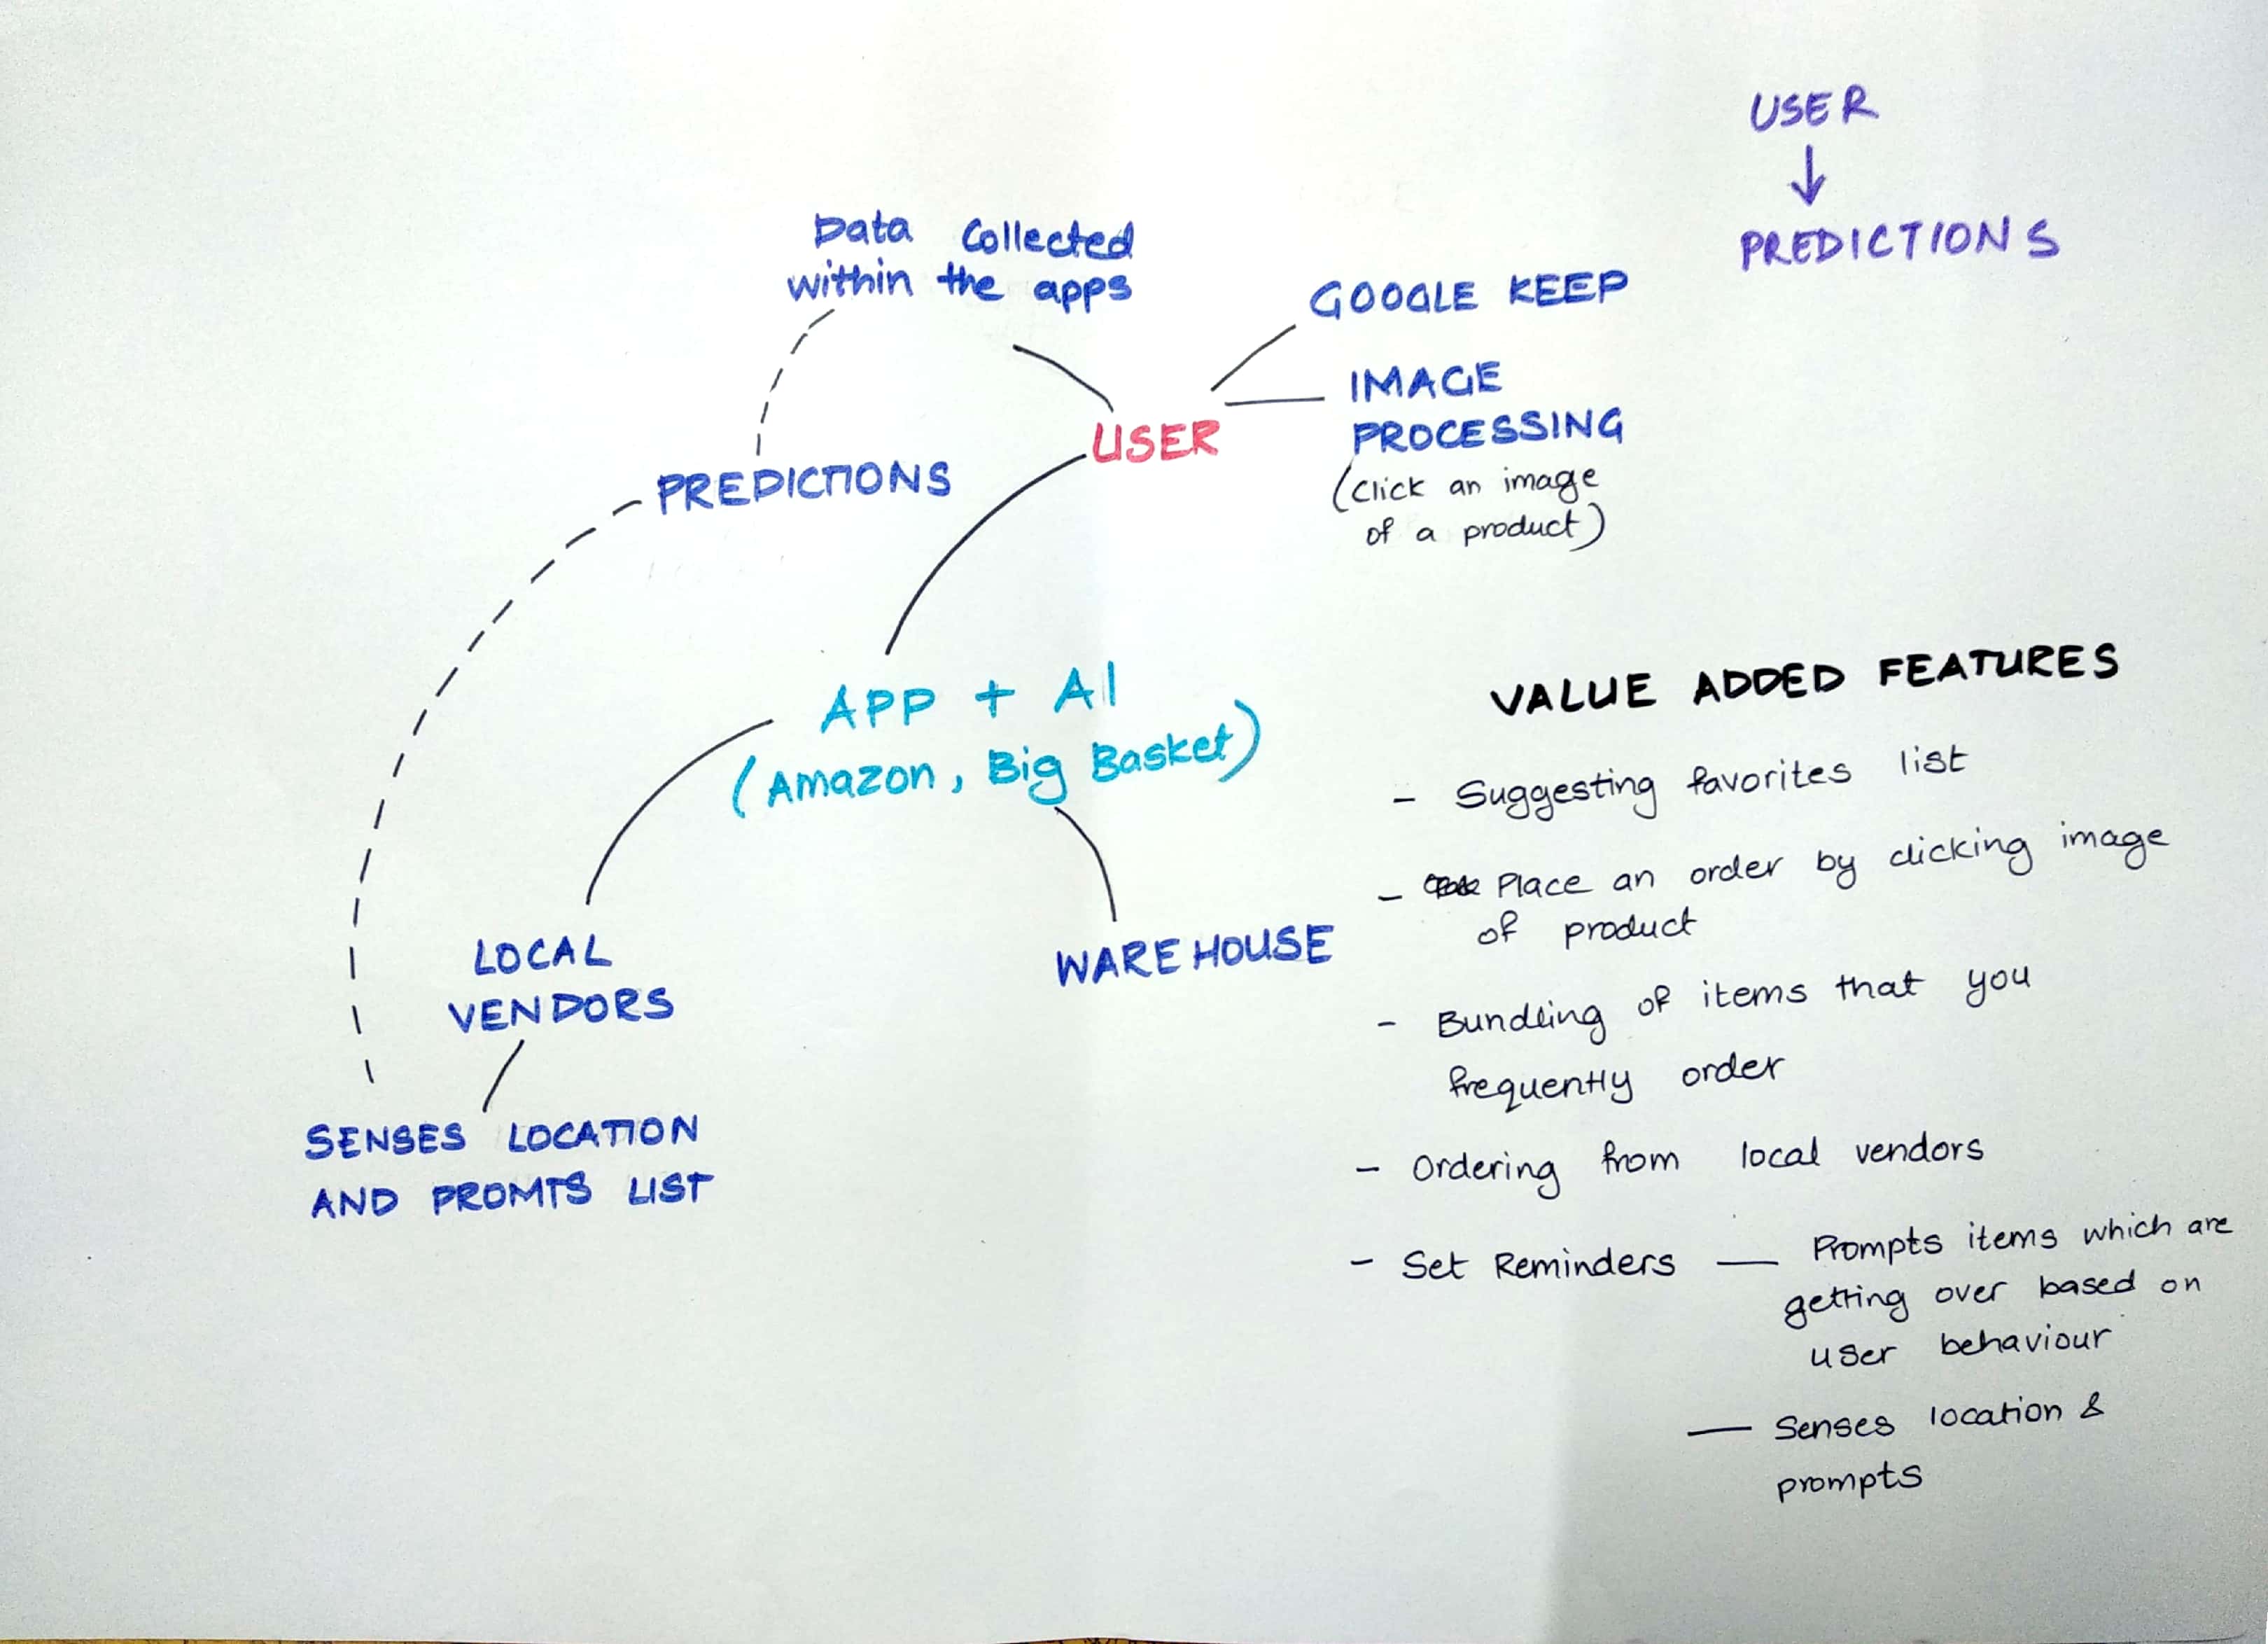 USER
PREDICTIONS
Data Collected
within the apps
GOOGLE KEEP
IMAGE
PROCESSING
(Click an image
of a product)
USER
PREDICTIONS
APP + AI
(Amazon, Big Basket)
LOCAL
VENDORS
WAREHOUSE
SENSES LOCATION
AND PROMTS LIST
VALUE ADDED FEATURES
- Suggesting favorites list
- Place an order by clicking image
of product
- Bundling of items that you
frequently order
- Ordering from local vendors
- Set Reminders — Prompts items which are
getting over based on
user behaviour
— Senses location &
prompts